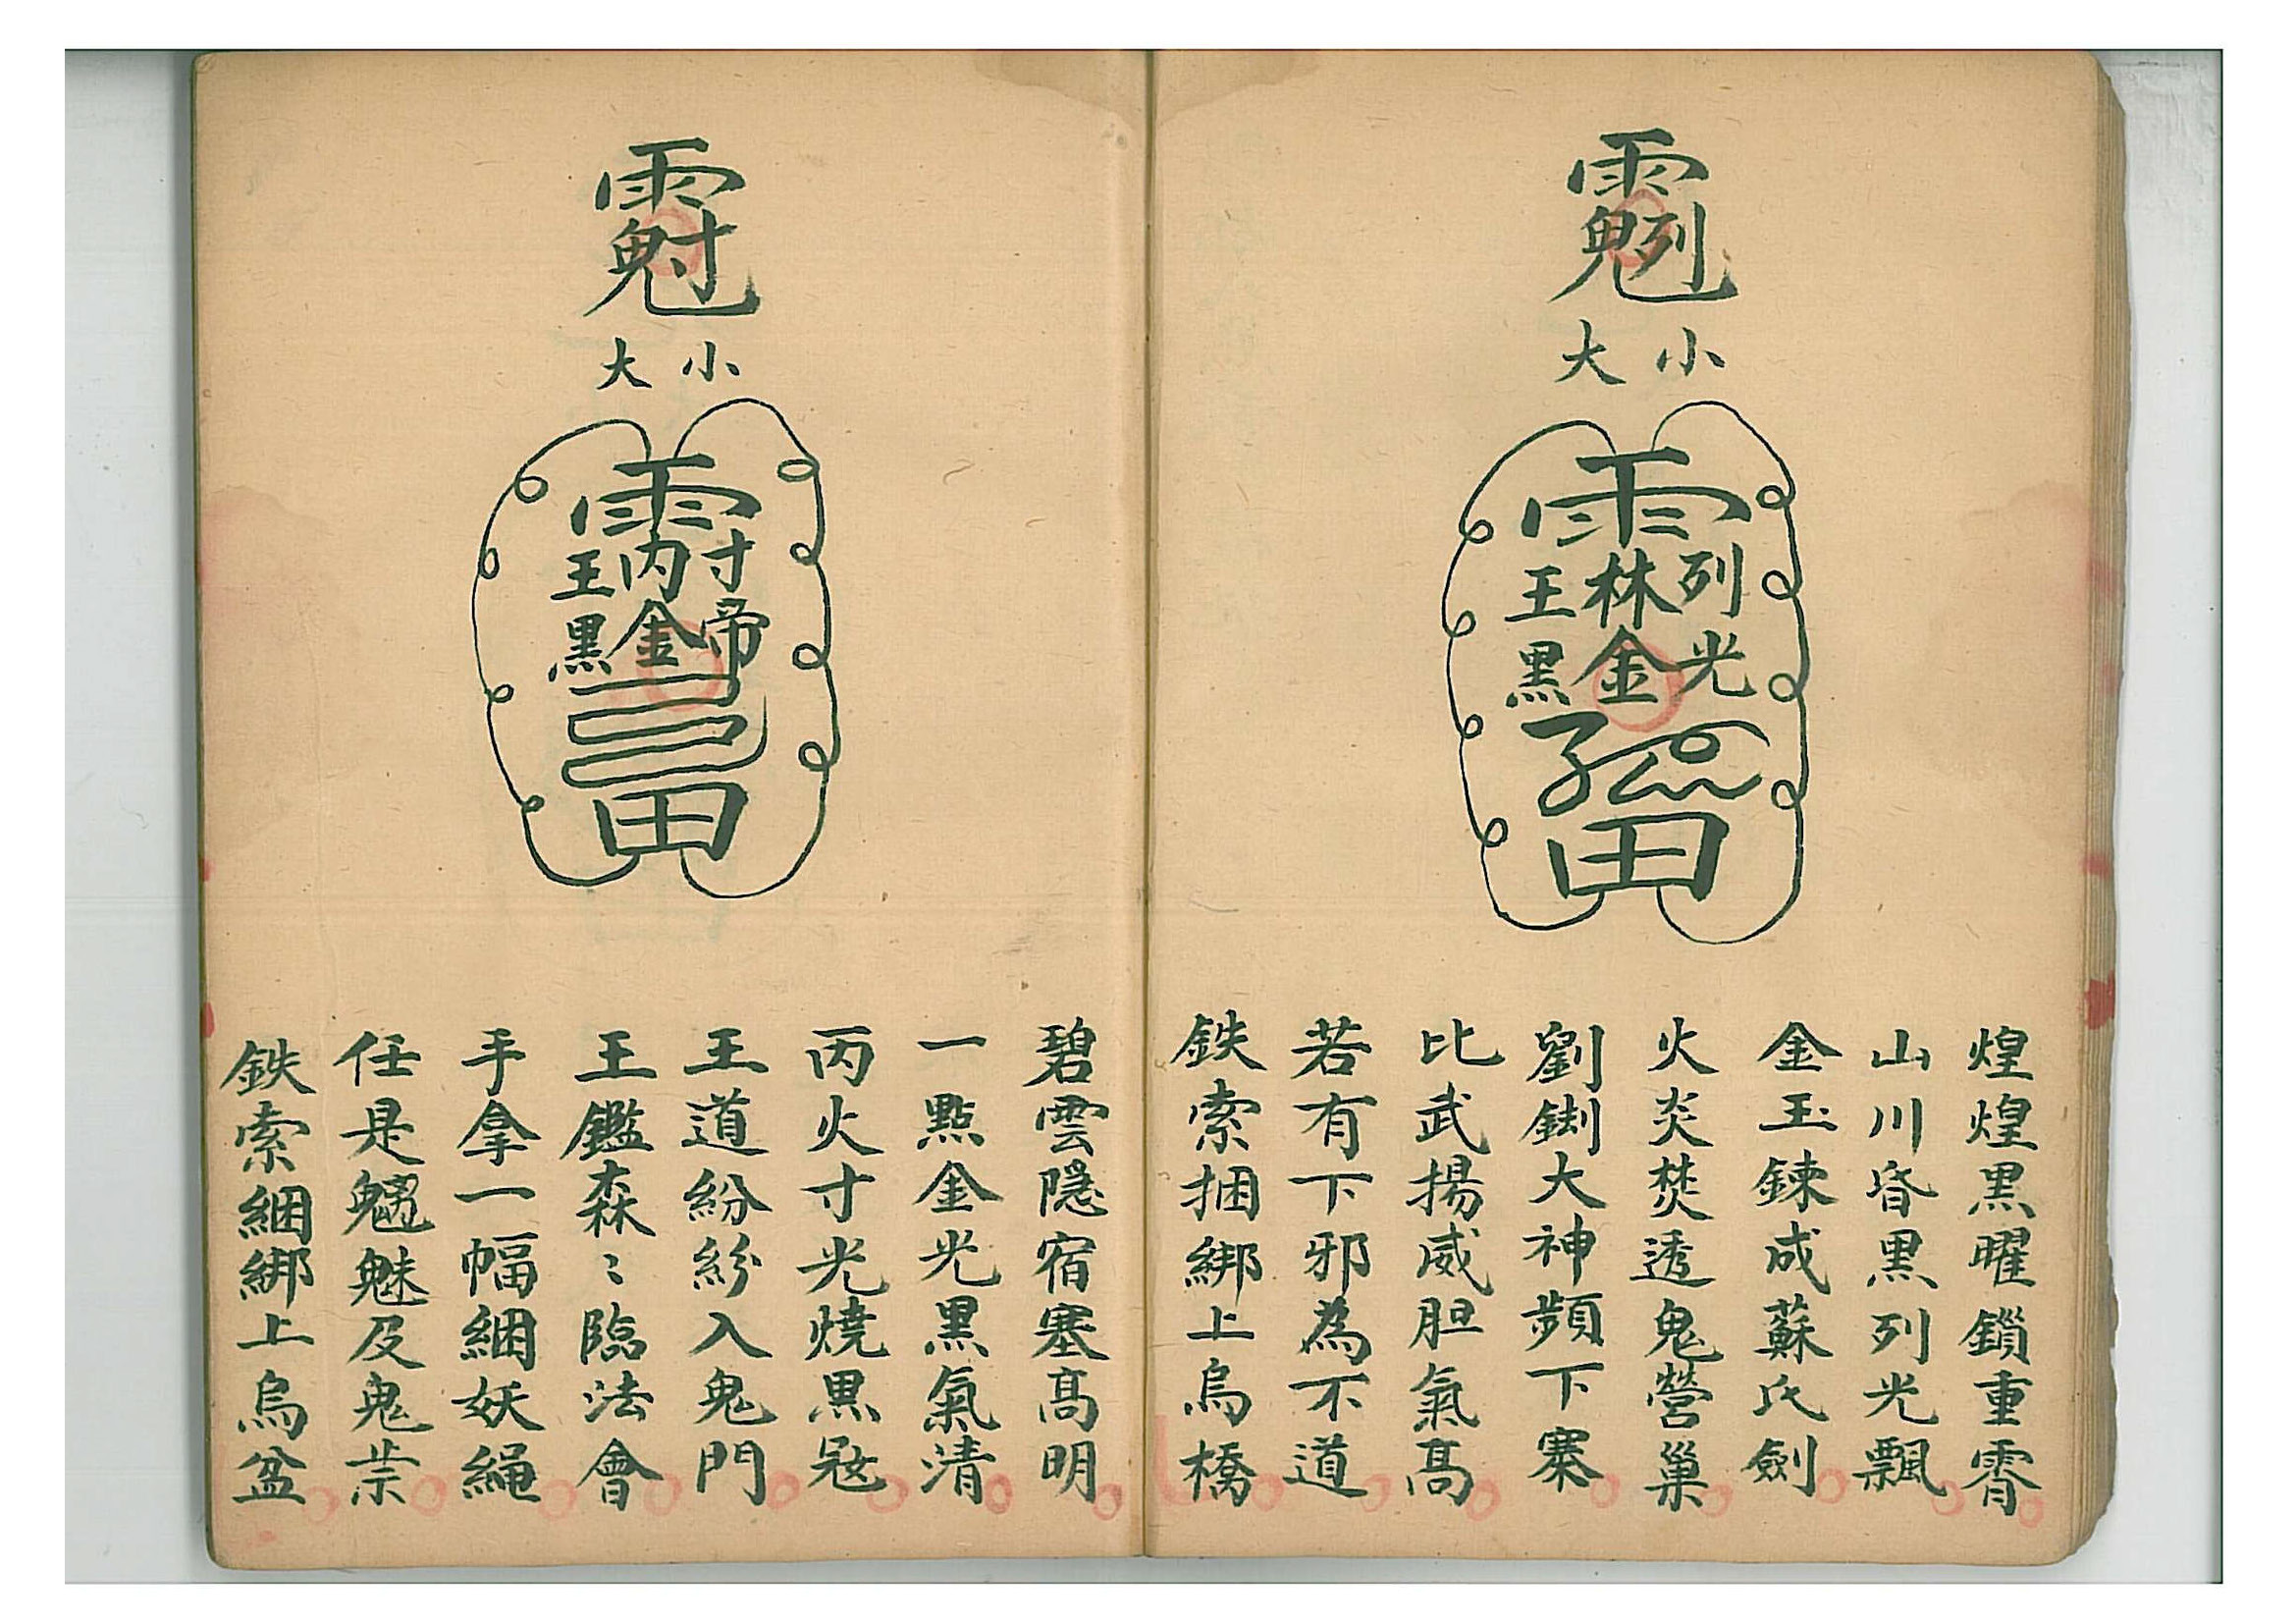 小
大
列
光
林
金
王
黑
田
煌煌黑曜鎖重霄
山川昏黑列光飄
金玉鍊成蘇氏劍
火炎焚透鬼營巢
劉鍘大神頻下寨
比武揚威胆氣髙
若有下邪為不道
鉄索捆綁上烏橋
小
大
寸
帝
丙
金
王
黑
田
碧雲隱宿塞髙明
一點金光黑氣清
丙火寸光燒黑
王道紛紛入鬼門
王鑑森〻臨法會
手拿一幅綑妖繩
任是魑魅及鬼祟
鉄索綑綁上烏盆